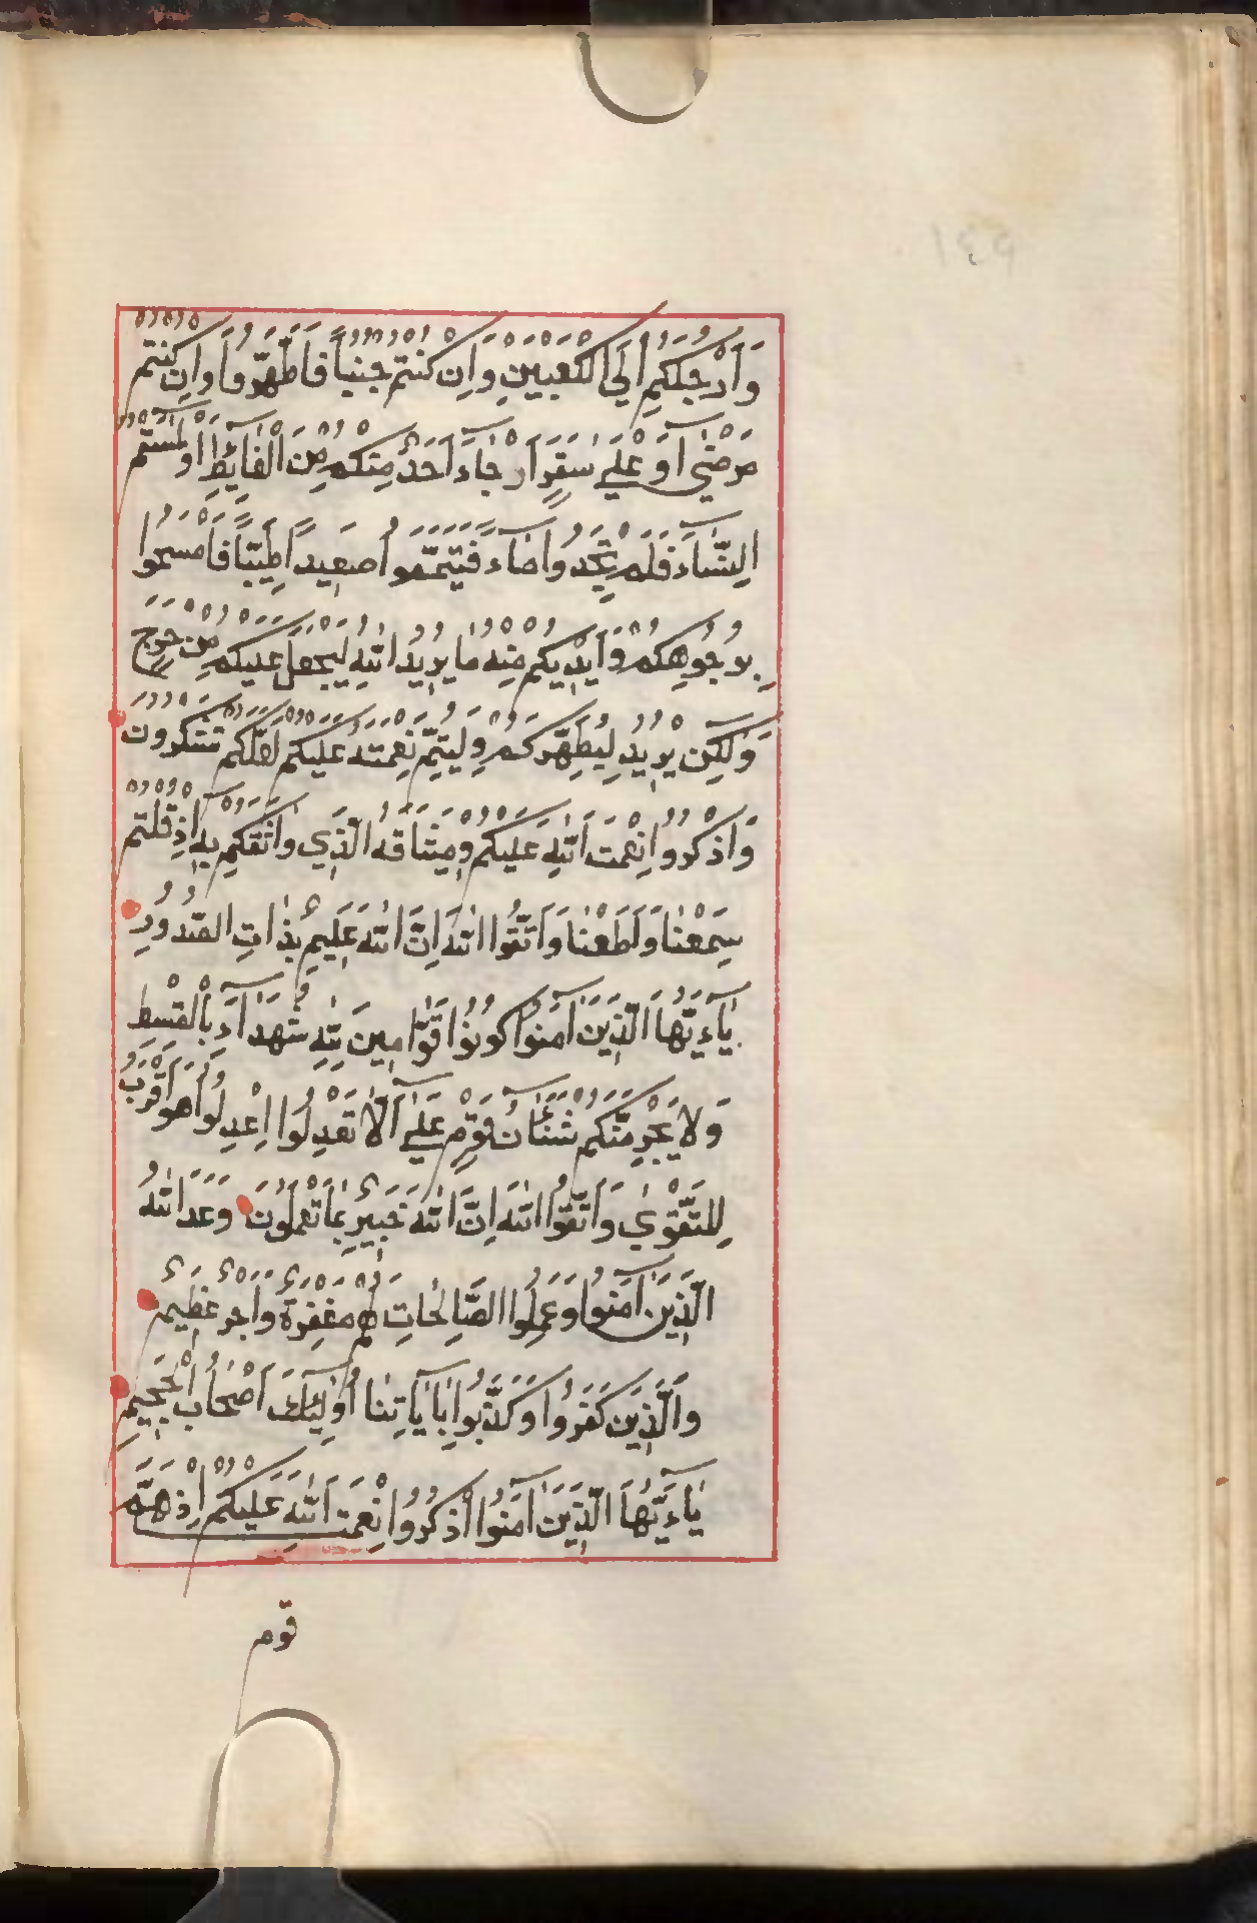 وَأَرْجُلَكُمْ إِلَى الْكَعْبَيْنِ وَإِن كُنْتُمْ جُنُبًا فَاطَّهَّرُوا وَإِن كُنْتُمْ
مَرْضَىٰ أَوْ عَلَىٰ سَفَرٍ أَوْ جَاءَ أَحَدٌ مِنْكُمْ مِنَ الْغَائِطِ أَوْ لٰمَسْتُمُ
النِّسَاءَ فَلَمْ تَجِدُوا مَاءً فَتَيَمَّمُوا صَعِيدًا طَيِّبًا فَامْسَحُوا
بِوُجُوهِكُمْ وَأَيْدِيكُمْ مِنْهُ مَا يُرِيدُ اللّٰهُ لِيَجْعَلَ عَلَيْكُمْ مِنْ حَرَجٍ
وَلٰكِنْ يُرِيدُ لِيُطَهِّرَكُمْ وَلِيُتِمَّ نِعْمَتَهُ عَلَيْكُمْ لَعَلَّكُمْ تَشْكُرُونَ
وَاذْكُرُوا نِعْمَتَ اللّٰهِ عَلَيْكُمْ وَمِيثَاقَهُ الَّذِي وَاثَقَكُمْ بِهِ إِذْ قُلْتُمْ
سَمِعْنَا وَأَطَعْنَا وَاتَّقُوا اللّٰهَ إِنَّ اللّٰهَ عَلِيمٌ بِذَاتِ الصُّدُورِ
يَاءَيُّهَا الَّذِينَ آمَنُوا كُونُوا قَوَّامِينَ لِلّٰهِ شُهَدَاءَ بِالْقِسْطِ
وَلَا يَجْرِمَنَّكُمْ شَنَئَانُ قَوْمٍ عَلَىٰ أَلَّا تَعْدِلُوا اعْدِلُوا هُوَ أَقْرَبُ
لِلتَّقْوَىٰ وَاتَّقُوا اللّٰهَ إِنَّ اللّٰهَ خَبِيرٌ بِمَا تَعْمَلُونَ وَعَدَ اللّٰهُ
الَّذِينَ آمَنُوا وَعَمِلُوا الصَّالِحَاتِ لَهُمْ مَغْفِرَةٌ وَأَجْرٌ عَظِيمٌ
وَالَّذِينَ كَفَرُوا وَكَذَّبُوا بِآيَاتِنَا أُولَٰئِكَ أَصْحَابُ الْجَحِيمِ
يَاءَيُّهَا الَّذِينَ آمَنُوا اذْكُرُوا نِعْمَتَ اللّٰهِ عَلَيْكُمْ إِذْ هَمَّ
قوم